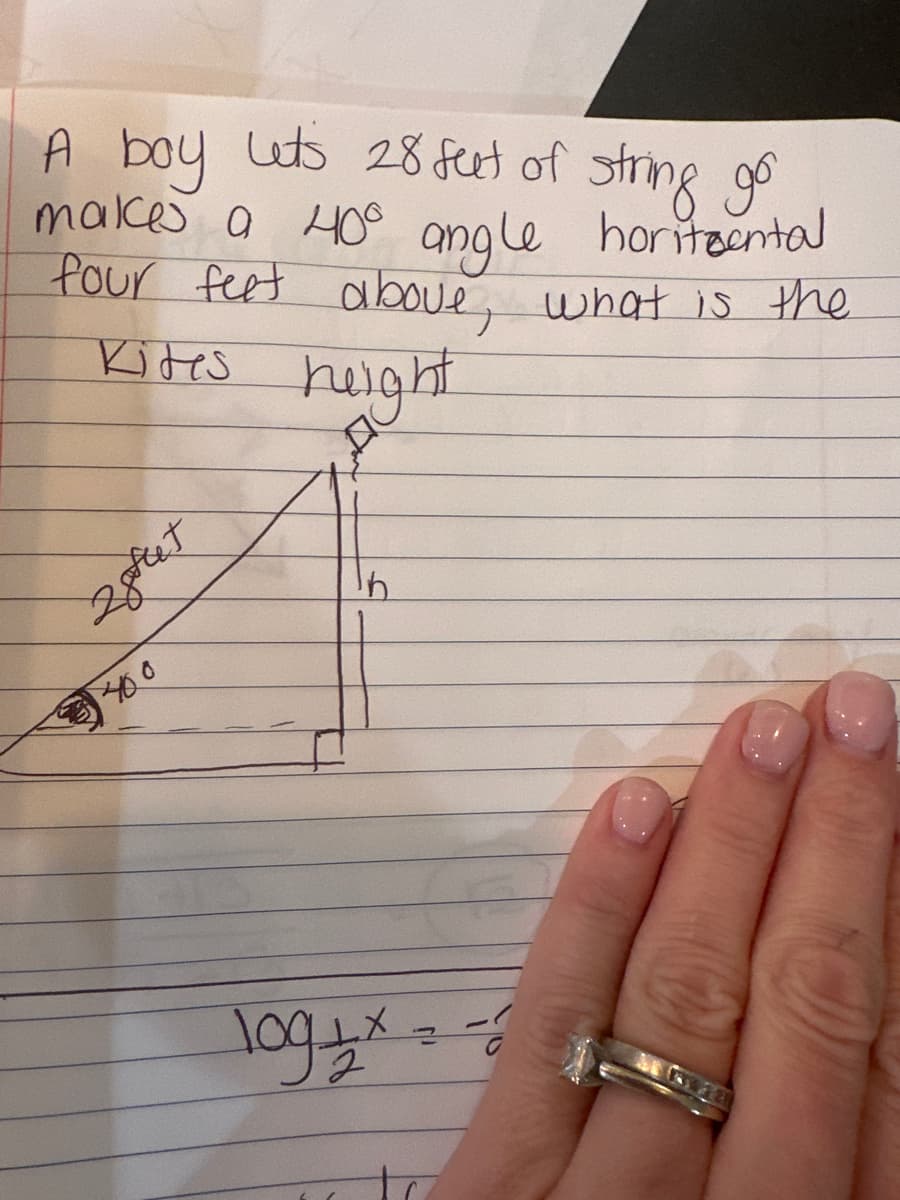 A boy lets 28 feet of string go
makes a 40° angle horitzental
four feet above, what is the
Kites height
28 feet
h
40°
log 1/2 x = -